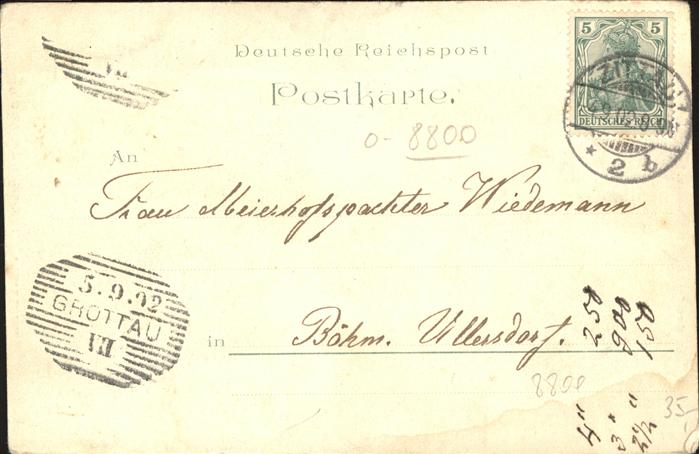 Deutsche Reichspost
Postkarte.
5 5
DEUTSCHES REICH
2 b
0-8800
An
Frau Meierhofspachter Wiedemann
5.9.02
GROTTAU
in Böhm. Ullersdorf.
258
900
150
8800
35,-